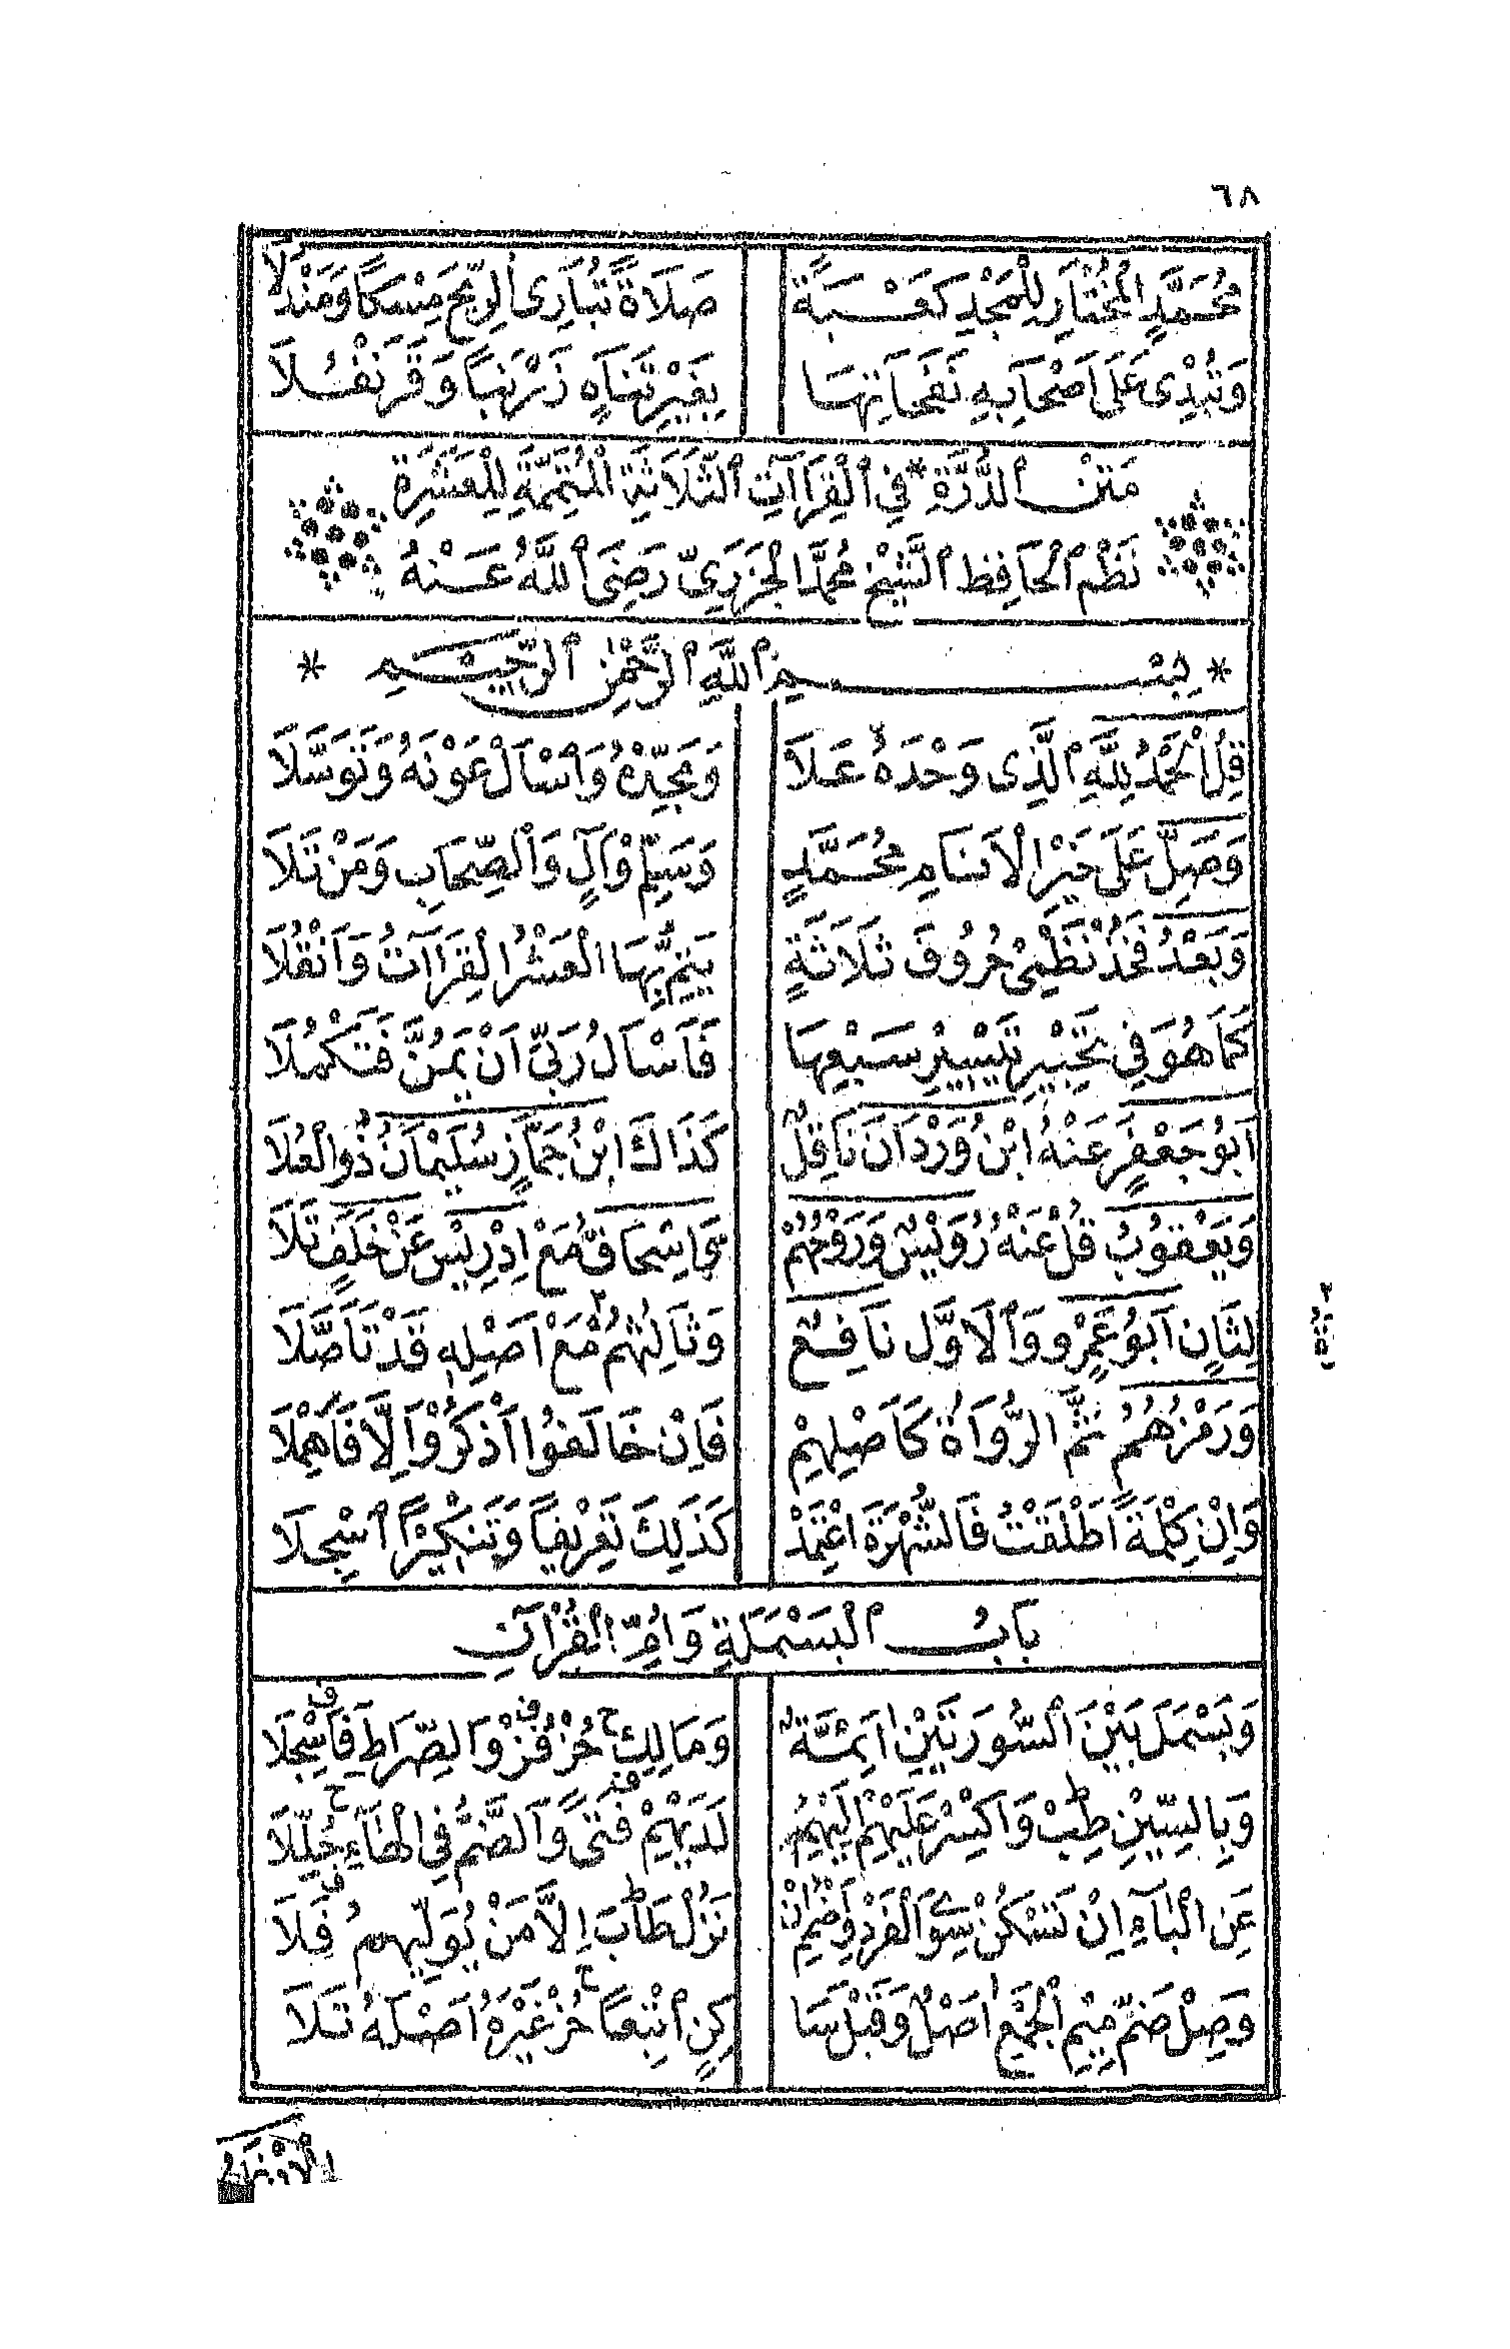 ٦٨
مُحَمَّدٍ الْمُخْتَارِ لِلْمَجْدِ كَعْبَةً صَلَاةً تُبَارِى الرِّيحَ مِسْكًا وَمَنْدَلَا
وَتُبْدِى عَلَى اَصْحَابِهِ نَفَحَاتِهَا بِغَيْرِ تَنَاهٍ زَرْنَبًا وَقَرَنْفُلَا
مَتْنُ الدُّرَّةِ * فِي الْقِرَاآتِ الثَّلَاثَةِ الْمُتَمِّمَةِ لِلْعَشَرَةِ
نَظْمُ الْحَافِظِ الشَّيْخِ مُحَمَّدٍ الْجَزَرِيِّ رَضِىَ اللَّهُ عَنْهُ
* بِسْمِ اللَّهِ الرَّحْمٰنِ الرَّحِيمِ *
قُلِ الْحَمْدُ لِلَّهِ الَّذِى وَحْدَهُ عَلَا وَمَجِّدْهُ وَاسْاَلْ عَوْنَهُ وَتَوَسَّلَا
وَصَلِّ عَلَى خَيْرِ الْاَنَامِ مُحَمَّدٍ وَسَلِّمْ وَآلٍ وَالصِّحَابِ وَمَنْ تَلَا
وَبَعْدُ فَخُذْ نَظْمِى حُرُوفَ ثَلَاثَةٍ يَتِمُّ بِهَا الْعَشْرُ الْقِرَاآتُ وَانْقُلَا
كَمَا هُوَ فِي تَحْبِيرِ تَيْسِيرِ سَبْعِهَا فَاَسْاَلُ رَبِّى اَنْ يَمُنَّ فَتَكْمُلَا
اَبُو جَعْفَرٍ عَنْهُ ابْنُ وَرْدَانَ نَاقِلٌ كَذَاكَ ابْنُ جَمَّازٍ سُلَيْمَانُ ذُو الْعُلَا
وَيَعْقُوبُ قُلْ عَنْهُ رُوَيْسٌ وَرَوْحُهُمْ وَاِسْحَاقُ مَعْ اِدْرِيسَ عَنْ خَلَفٍ تَلَا
لِثَانٍ اَبُو عَمْرٍو وَالْاَوَّلِ نَافِعٌ وَثَالِثُهُمْ مَعْ اَصْلِهِ قَدْ تَاَصَّلَا
وَرَمْزُهُمُ ثُمَّ الرُّوَاةُ كَاَصْلِهِمْ فَاِنْ خَالَفُوا اَذْكُرْ وَاِلَّا فَاُهْمِلَا
وَاِنْ كِلْمَةً اَطْلَقْتُ فَالشُّهْرَةَ اعْتَمِدْ كَذَلِكَ تَعْرِيفًا وَتَنْكِيرًا اسْجِلَا
بَابُ الْبَسْمَلَةِ وَاُمِّ الْقُرْآنِ
وَبَسْمَلَ بَيْنَ السُّورَتَيْنِ اَئِمَّةٌ وَمَالِكِ حُزْ فُزْ وَالصِّرَاطَ فَاَسْجِلَا
وَبِالسِّينِ طِبْ وَاكْسِرْ عَلَيْهِمْ اِلَيْهِمُ لَدَيْهِمْ فَتًى وَالضَّمُّ فِي الْهَاءِ حُلِّلَا
عَنِ الْيَاءِ اِنْ تَسْكُنْ سِوَى الْفَرْدِ وَاضْمُمْ اِنْ تَزُلْ طَابَ اِلَّا مَنْ يُوَلِّهِمُ فَلَا
وَصِلْ ضَمَّ مِيمِ الْجَمْعِ اَصْلٌ وَقَبْلَ سَا كِنٍ اتْبِعًا حُزْ غَيْرُهُ اَصْلَهُ تَلَا